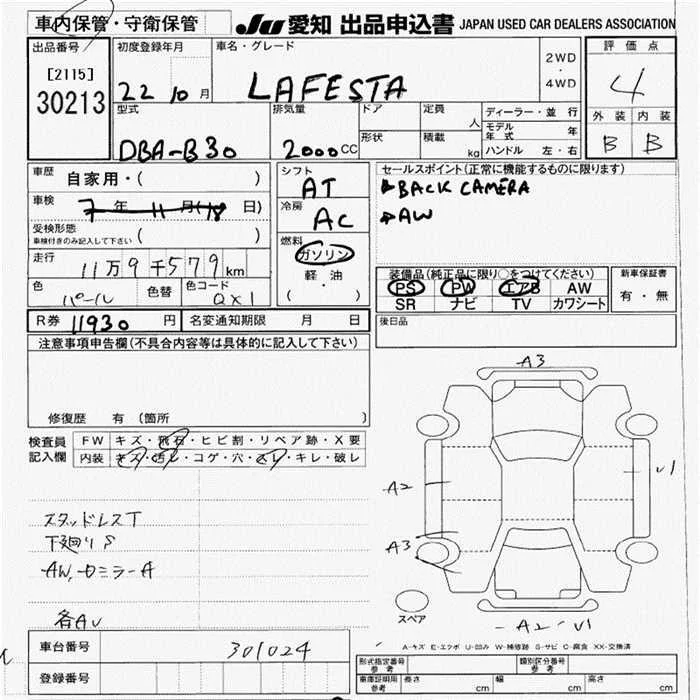 車内保管・守衛保管
JU 愛知 出品申込書 JAPAN USED CAR DEALERS ASSOCIATION
出品番号
[2115]
30213
初度登録年月
22 10 月
車名・グレード
LAFESTA
2WD
・
4WD
評価点
4
外装 内装
B B
型式
DBA-B30
排気量
2000 CC
ドア
定員
人
形状
積載
kg
ディーラー・並行
モデル年式 年
ハンドル 左・右
車歴
自家用・( )
車検
7 年 11 月 (18 日)
受検形態
車検付きのみ記入して下さい ( )
走行
11万9千579 km
色
パール
色替
色コード
QX1
シフト
AT
冷房
AC
燃料
ガソリン
軽・油
( ・ )
セールスポイント(正常に機能するものに限ります)
BACK CAMERA
AW
装備品(純正品に限り○をつけてください)
PS PW エアB AW
SR ナビ TV カワシート
新車保証書
有・無
後日品
R券 11930 円
名変通知期限 月 日
注意事項申告欄(不具合内容等は具体的に記入して下さい)
修復歴 有(箇所 )
検査員
記入欄
FW キズ・飛石・ヒビ割・リペア跡・X要
内装 キズ・汚レ・コゲ・穴・スレ・キレ・破レ
スタッドレスT
下廻りS
AW,ロミラーA
各AU
A3
A2
U1
A3
スペア
A2 U1
A-キズ E-エクボ U-凹み W-補修跡 S-サビ C-腐食 XX-交換済
車台番号
301024
登録番号
形式指定番号
参考
類別区分番号
参考
車庫証明用
参考
長さ cm 幅 cm 高さ cm